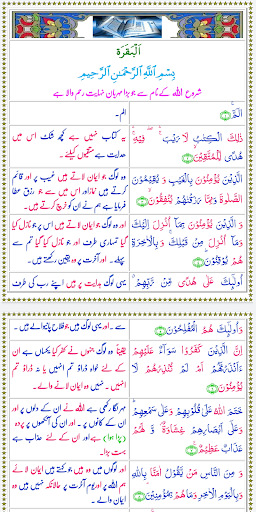 اَلْبَقَرَة
بِسْمِ اللّٰهِ الرَّحْمٰنِ الرَّحِيْمِ
شروع اللہ کے نام سے جو بڑا مہربان نہایت رحم والا ہے
الٓمّٓ ۚ
الم۔
ذٰلِكَ الْكِتٰبُ لَا رَيْبَ ۛۚ فِيْهِ ۛۚ
هُدًى لِّلْمُتَّقِيْنَ ۙ
یہ کتاب نہیں ہے کچھ شک اس میں
ھدایت ہے متقیوں کیلئے۔
الَّذِيْنَ يُؤْمِنُوْنَ بِالْغَيْبِ وَ يُقِيْمُوْنَ
الصَّلٰوةَ وَ مِمَّا رَزَقْنٰهُمْ يُنْفِقُوْنَ ۙ
وہ لوگ جو ایمان لاتے ہیں غیب پر اور قائم
کرتے ہیں نماز اور اس میں سے جو رزق عطا
فرمایا ہے ہم نے ان کو خرچ کرتے ہیں۔
وَ الَّذِيْنَ يُؤْمِنُوْنَ بِمَاۤ اُنْزِلَ اِلَيْكَ
وَ مَاۤ اُنْزِلَ مِنْ قَبْلِكَ ۚ وَ بِالْاٰخِرَةِ
هُمْ يُوْقِنُوْنَ ؕ
اور وہ لوگ جو ایمان لاتے ہیں اس پر جو نازل کیا
گیا تمہاری طرف اور جو نازل کیا گیا تم سے
پہلے۔ اور آخرت پر وہ یقین رکھتے ہیں۔
اُولٰٓئِكَ عَلٰى هُدًى مِّنْ رَّبِّهِمْ ۗ
یہی لوگ ہدایت پر ہیں اپنے رب کی طرف
وَ اُولٰٓئِكَ هُمُ الْمُفْلِحُوْنَ
سے ۔ اور یہی لوگ ہیں جو فلاح پانیوالے ہیں۔
اِنَّ الَّذِيْنَ كَفَرُوْا سَوَآءٌ عَلَيْهِمْ
ءَاَنْذَرْتَهُمْ اَمْ لَمْ تُنْذِرْهُمْ لَا
يُؤْمِنُوْنَ
یقیناً وہ لوگ جنہوں نے کفر کیا یکساں ہے ان
کے لئے خواہ ڈراؤ تم انہیں یا نہ ڈراؤ تم
انہیں۔ نہیں وہ ایمان لانے والے۔
خَتَمَ اللّٰهُ عَلٰى قُلُوْبِهِمْ وَ عَلٰى سَمْعِهِمْ ؕ
وَ عَلٰۤى اَبْصَارِهِمْ غِشَاوَةٌ ۫ وَّ لَهُمْ
عَذَابٌ عَظِيْمٌ
مہر لگا رکھی ہے اللہ نے ان کے دلوں پر اور
ان کے کانوں پر ۔ اور ان کی آنکھوں پر پردہ
(پڑا ہوا) ہے اور ان کے لئے عذاب ہے
بہت بڑا۔
وَ مِنَ النَّاسِ مَنْ يَّقُوْلُ اٰمَنَّا بِاللّٰهِ
وَ بِالْيَوْمِ الْاٰخِرِ وَ مَا هُمْ بِمُؤْمِنِيْنَ ۘ
اور لوگوں میں وہ ہیں جو کہتے ہیں ایمان لائے
ہم اللہ پر اور یوم آخرت پر حالانکہ نہیں ہیں وہ
ایمان والے ۔